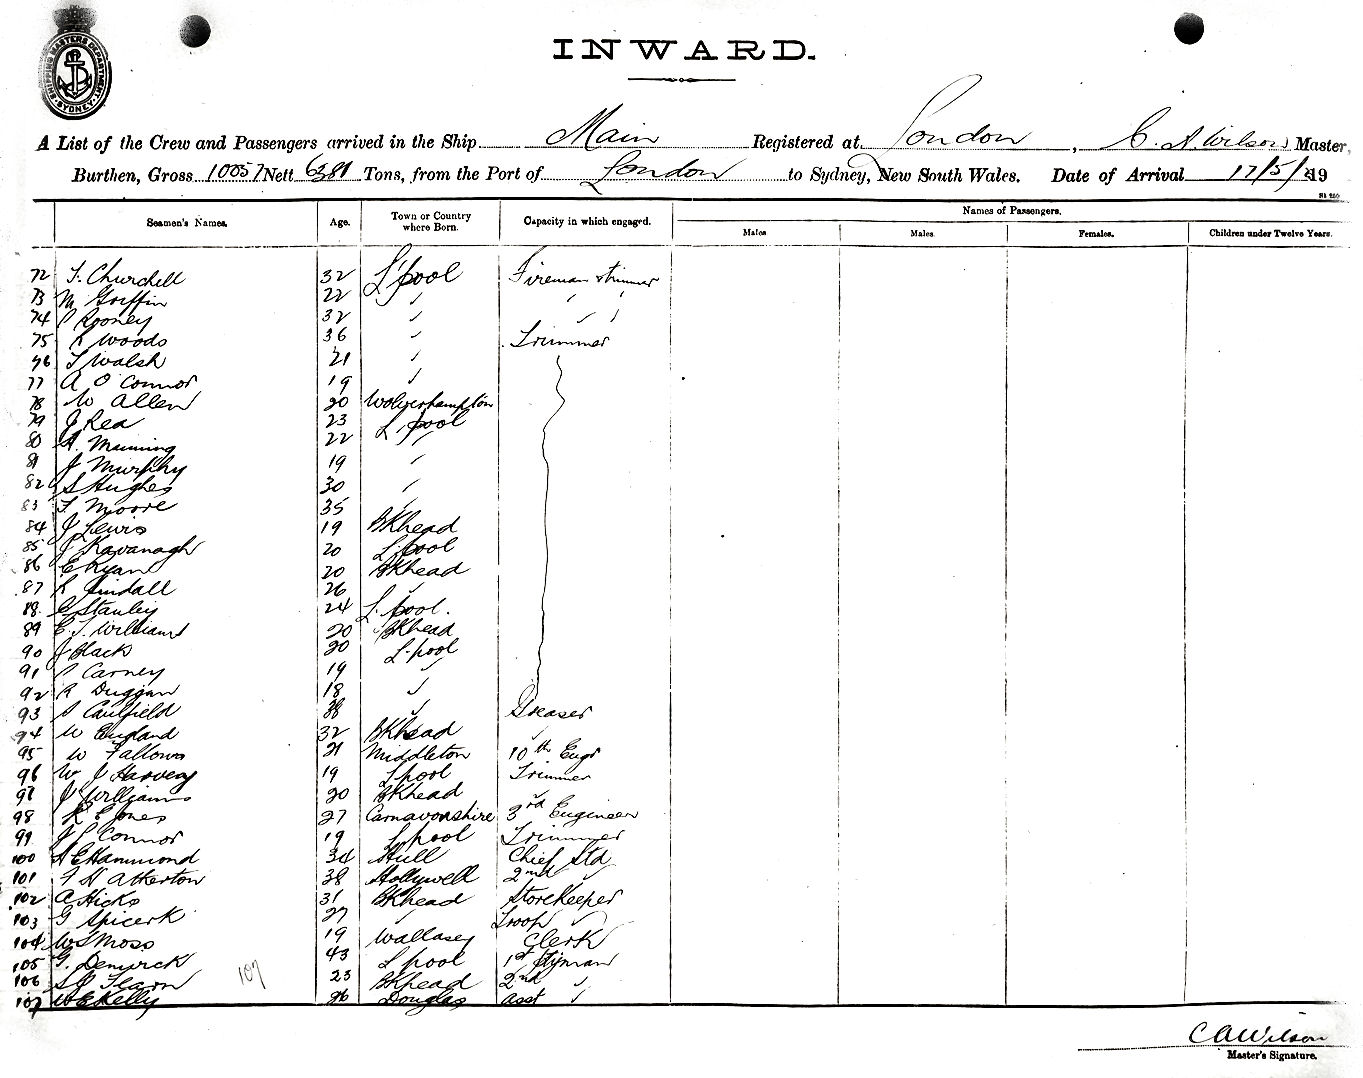 SHIPPING MASTERS DEPARTMENT. SYDNEY
INWARD.
A List of the Crew and Passengers arrived in the Ship Main Registered at London, C. A. Wilson Master,
Burthen, Gross 10057 Nett 6381 Tons, from the Port of London to Sydney, New South Wales. Date of Arrival 17/5/ 19
Names of Passengers.
Seamen's Names. Age. Town or Country where Born. Capacity in which engaged. Males Males. Females. Children under Twelve Years.
72 T. Churchill 32 L'pool Fireman & trimmer
73 M Griffin 22 " " "
74 P Rooney 32 " " "
75 R Woods 36 " Trimmer
76 T Walsh 21 "
77 A O'Connor 19 "
78 W Allen 20 Wolverhampton
79 J Rea 23 L'pool
80 A. Manning 22 "
81 J Murphy 19 "
82 S Hughes 30 "
83 T Moore 35 "
84 J Lewis 19 BKhead
85 J Kavanagh 20 L'pool
86 E Ryan 20 BKhead
87 R 26 "
88 C Stanley 24 L'pool.
89 E. T. Williams 20 BKhead
90 J Clack 20 L'pool
91 P Carney 19 "
92 R Duggan 18 "
93 P Caulfield 38 " Greaser
94 W England 32 BKhead "
95 W Fallows 21 Middleton 10th Engr
96 W J Harvey 19 L'pool Trimmer
97 J Williams 20 BKhead "
98 R E Jones 27 Carnavonshire 3rd Engineer
99 J P Connor 19 L'pool Trimmer
100 A E Hammond 34 Hull Chief Std
101 F H Atherton 38 Hollywell 2nd "
102 A Hicks 31 BKhead Storekeeper
103 G Spicer 27 " Troop "
104 W S Moss 19 Wallasey Clerk
105 G. Denwick 43 L'pool 1st
106 S J Fearn 23 BKhead 2nd "
107 W E Kelly 26 Douglas asst "
107
C A Wilson
Master's Signature.